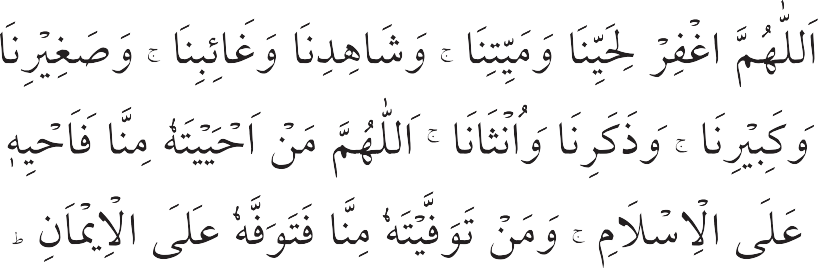 اَللّٰهُمَّ اغْفِرْ لِحَيِّنَا وَمَيِّتِنَا ۚ وَشَاهِدِنَا وَغَائِبِنَا ۚ وَصَغِيْرِنَا
وَكَبِيْرِنَا ۚ وَذَكَرِنَا وَاُنْثَانَا ۚ اَللّٰهُمَّ مَنْ اَحْيَيْتَهٗ مِنَّا فَاَحْيِهٖ
عَلَى الْاِسْلَامِ ۚ وَمَنْ تَوَفَّيْتَهٗ مِنَّا فَتَوَفَّهٗ عَلَى الْاِيْمَانِ ؕ